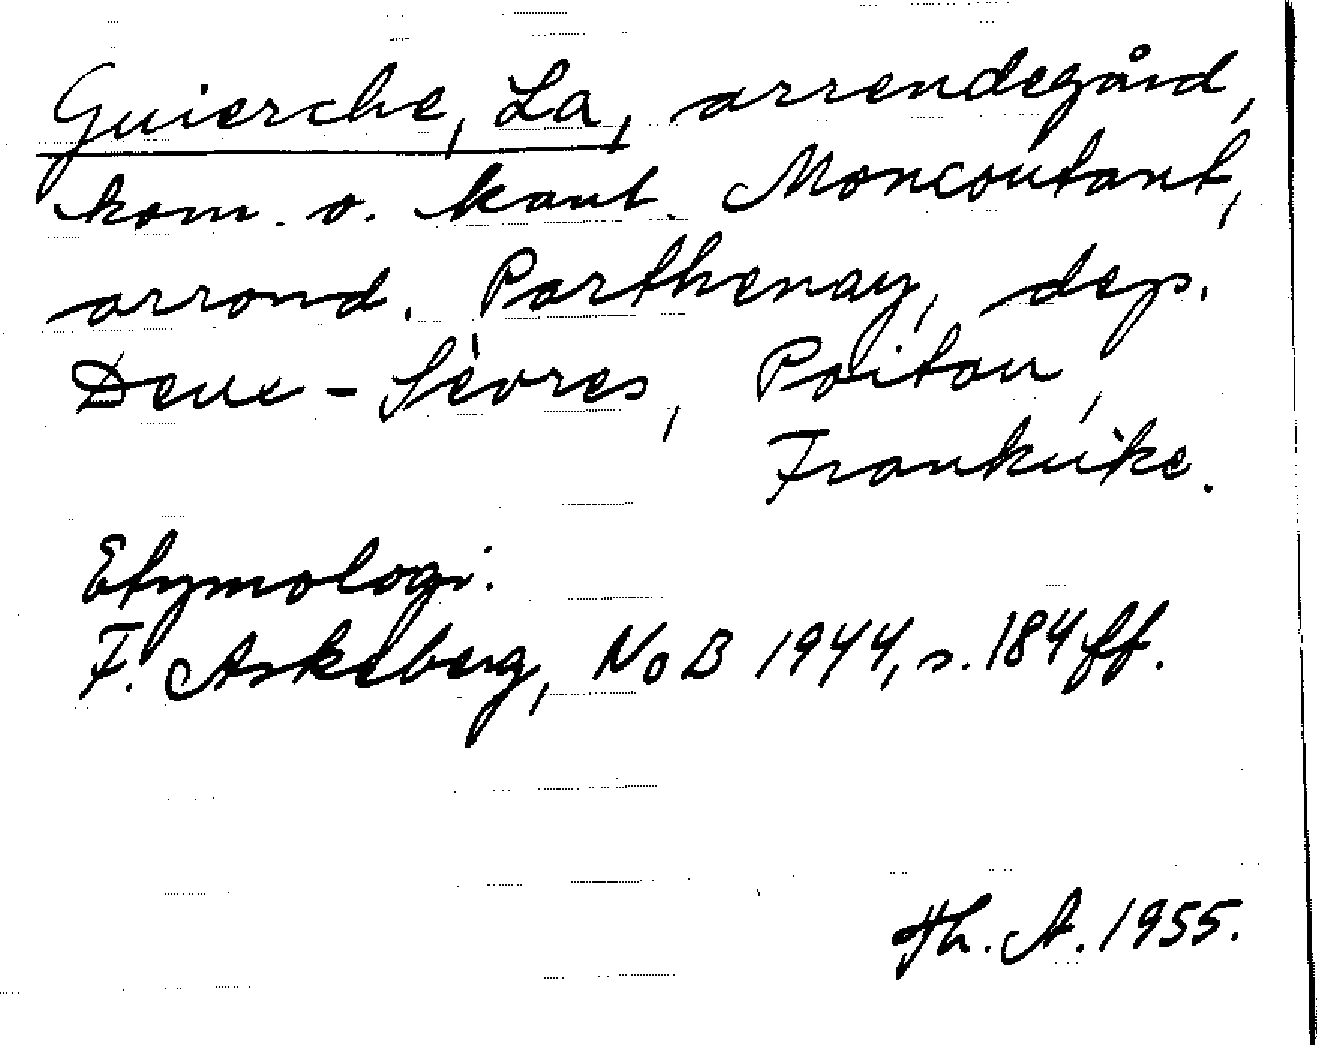 Guierche, La, arrendegård,
kom. o. kant. Moncoutant,
arrond. Parthenay, dep.
Deux-Sèvres, Poitou,
Frankrike.
Etymologi.
F. Askeberg, NoB 1944, s. 184 ff.
Th. A. 1955.